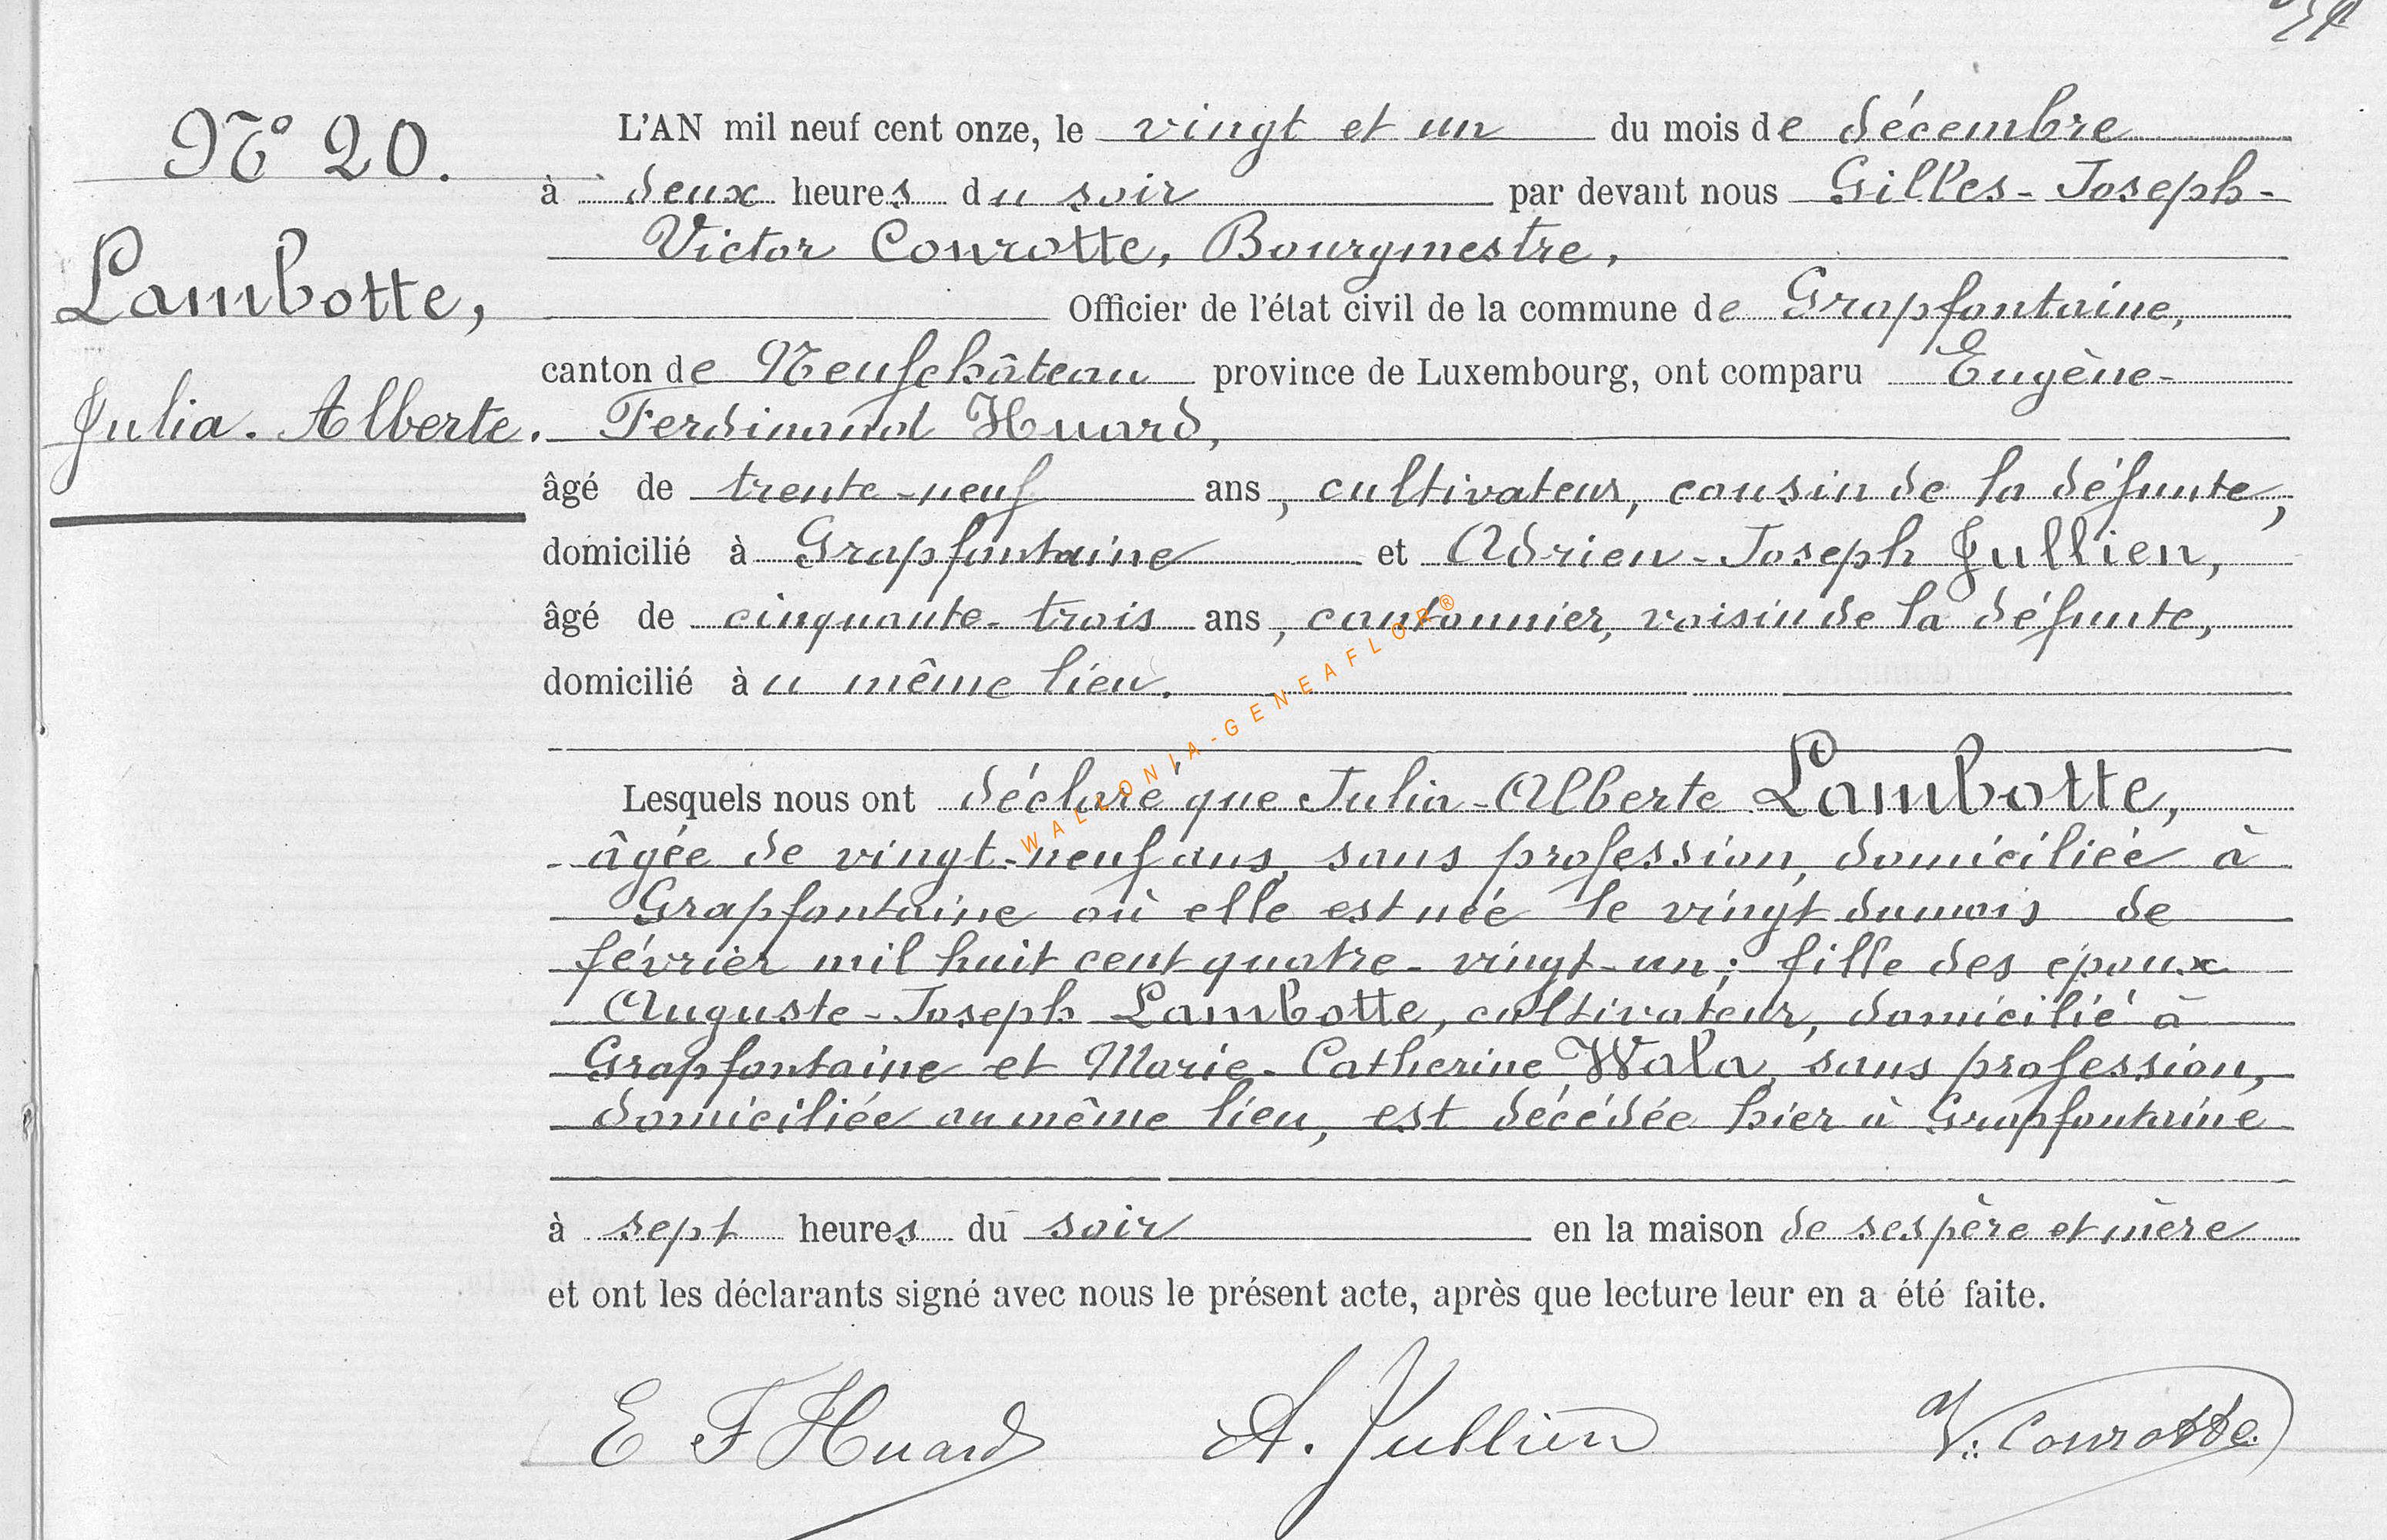 N° 20.
Lambotte,
Julia. Alberte.
L'AN mil neuf cent onze, le vingt et un du mois de décembre
à deux heures du soir par devant nous Gilles-Joseph-
Victor Conrotte, Bourgmestre,
Officier de l'état civil de la commune de Grapfontaine,
canton de Neufchâteau province de Luxembourg, ont comparu Eugène-
Ferdinand Huard,
âgé de trente-neuf ans, cultivateur, cousin de la défunte,
domicilié à Grapfontaine et Adrien-Joseph Jullien,
âgé de cinquante-trois ans, cantonnier, voisin de la défunte,
domicilié au même lieu.
WALLONIA-GENEAFLOR®
Lesquels nous ont déclaré que Julia-Alberte Lambotte,
âgée de vingt-neuf ans, sans profession, domiciliée à
Grapfontaine où elle est née le vingt du mois de
février mil huit cent quatre-vingt-un; fille des époux
Auguste-Joseph Lambotte, cultivateur, domicilié à
Grapfontaine et Marie-Catherine Wala, sans profession,
domiciliée au même lieu, est décédée hier à Grapfontaine
à sept heures du soir en la maison de ses père et mère
et ont les déclarants signé avec nous le présent acte, après que lecture leur en a été faite.
E F Huard A. Jullien V. Conrotte